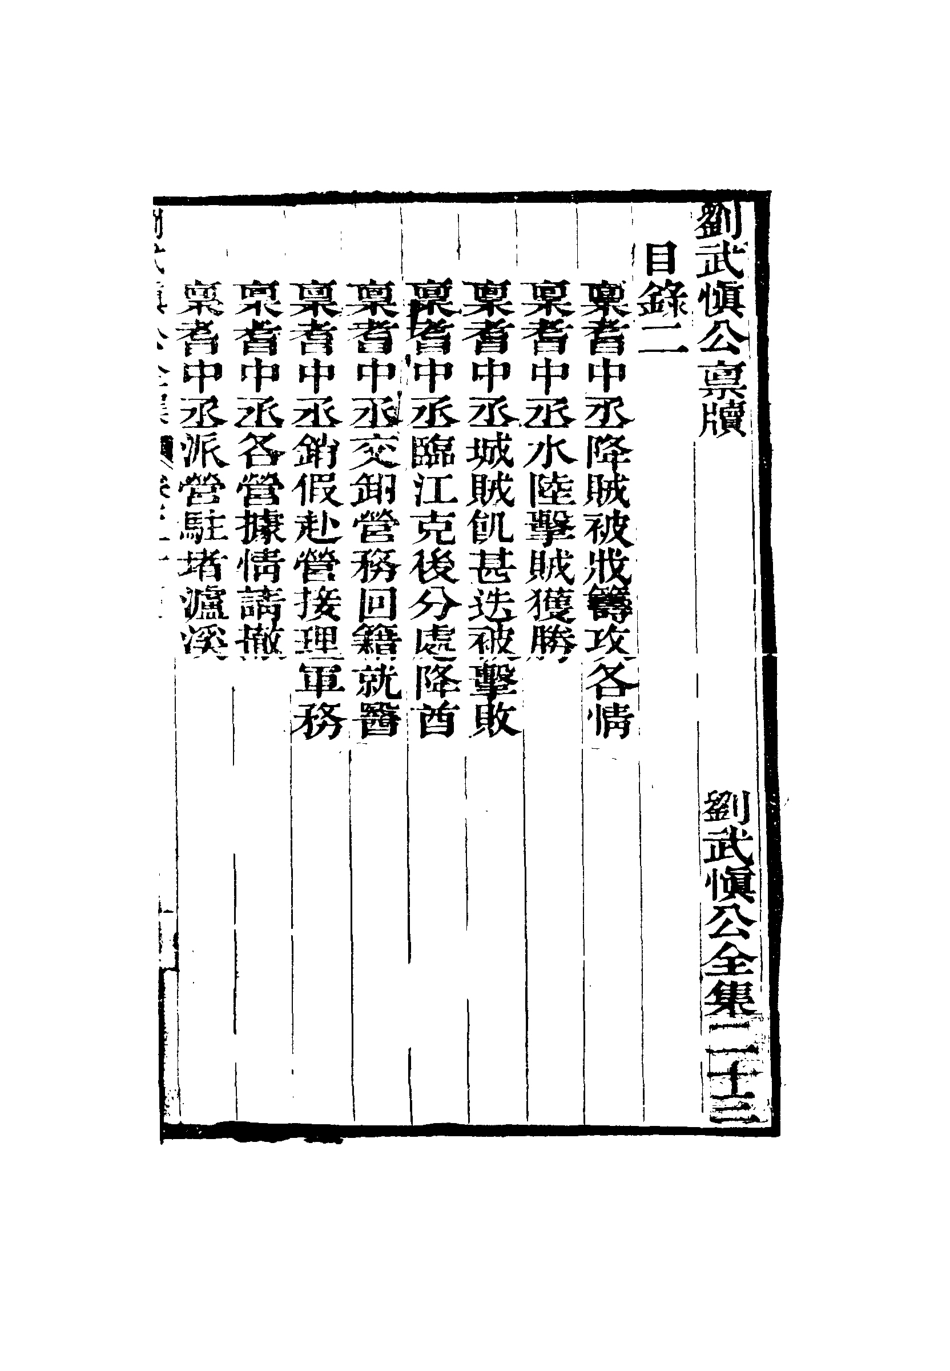 劉武慎公稟牘　劉武慎公全集二十三
目錄二
稟耆中丞降賊被戕籌攻各情
稟耆中丞水陸擊賊獲勝
稟耆中丞城賊飢甚迭被擊敗
稟耆中丞臨江克後分處降酋
稟耆中丞交卸營務回籍就醫
稟耆中丞銷假赴營接理軍務
稟耆中丞各營據情請撤
稟耆中丞派營駐堵瀘溪